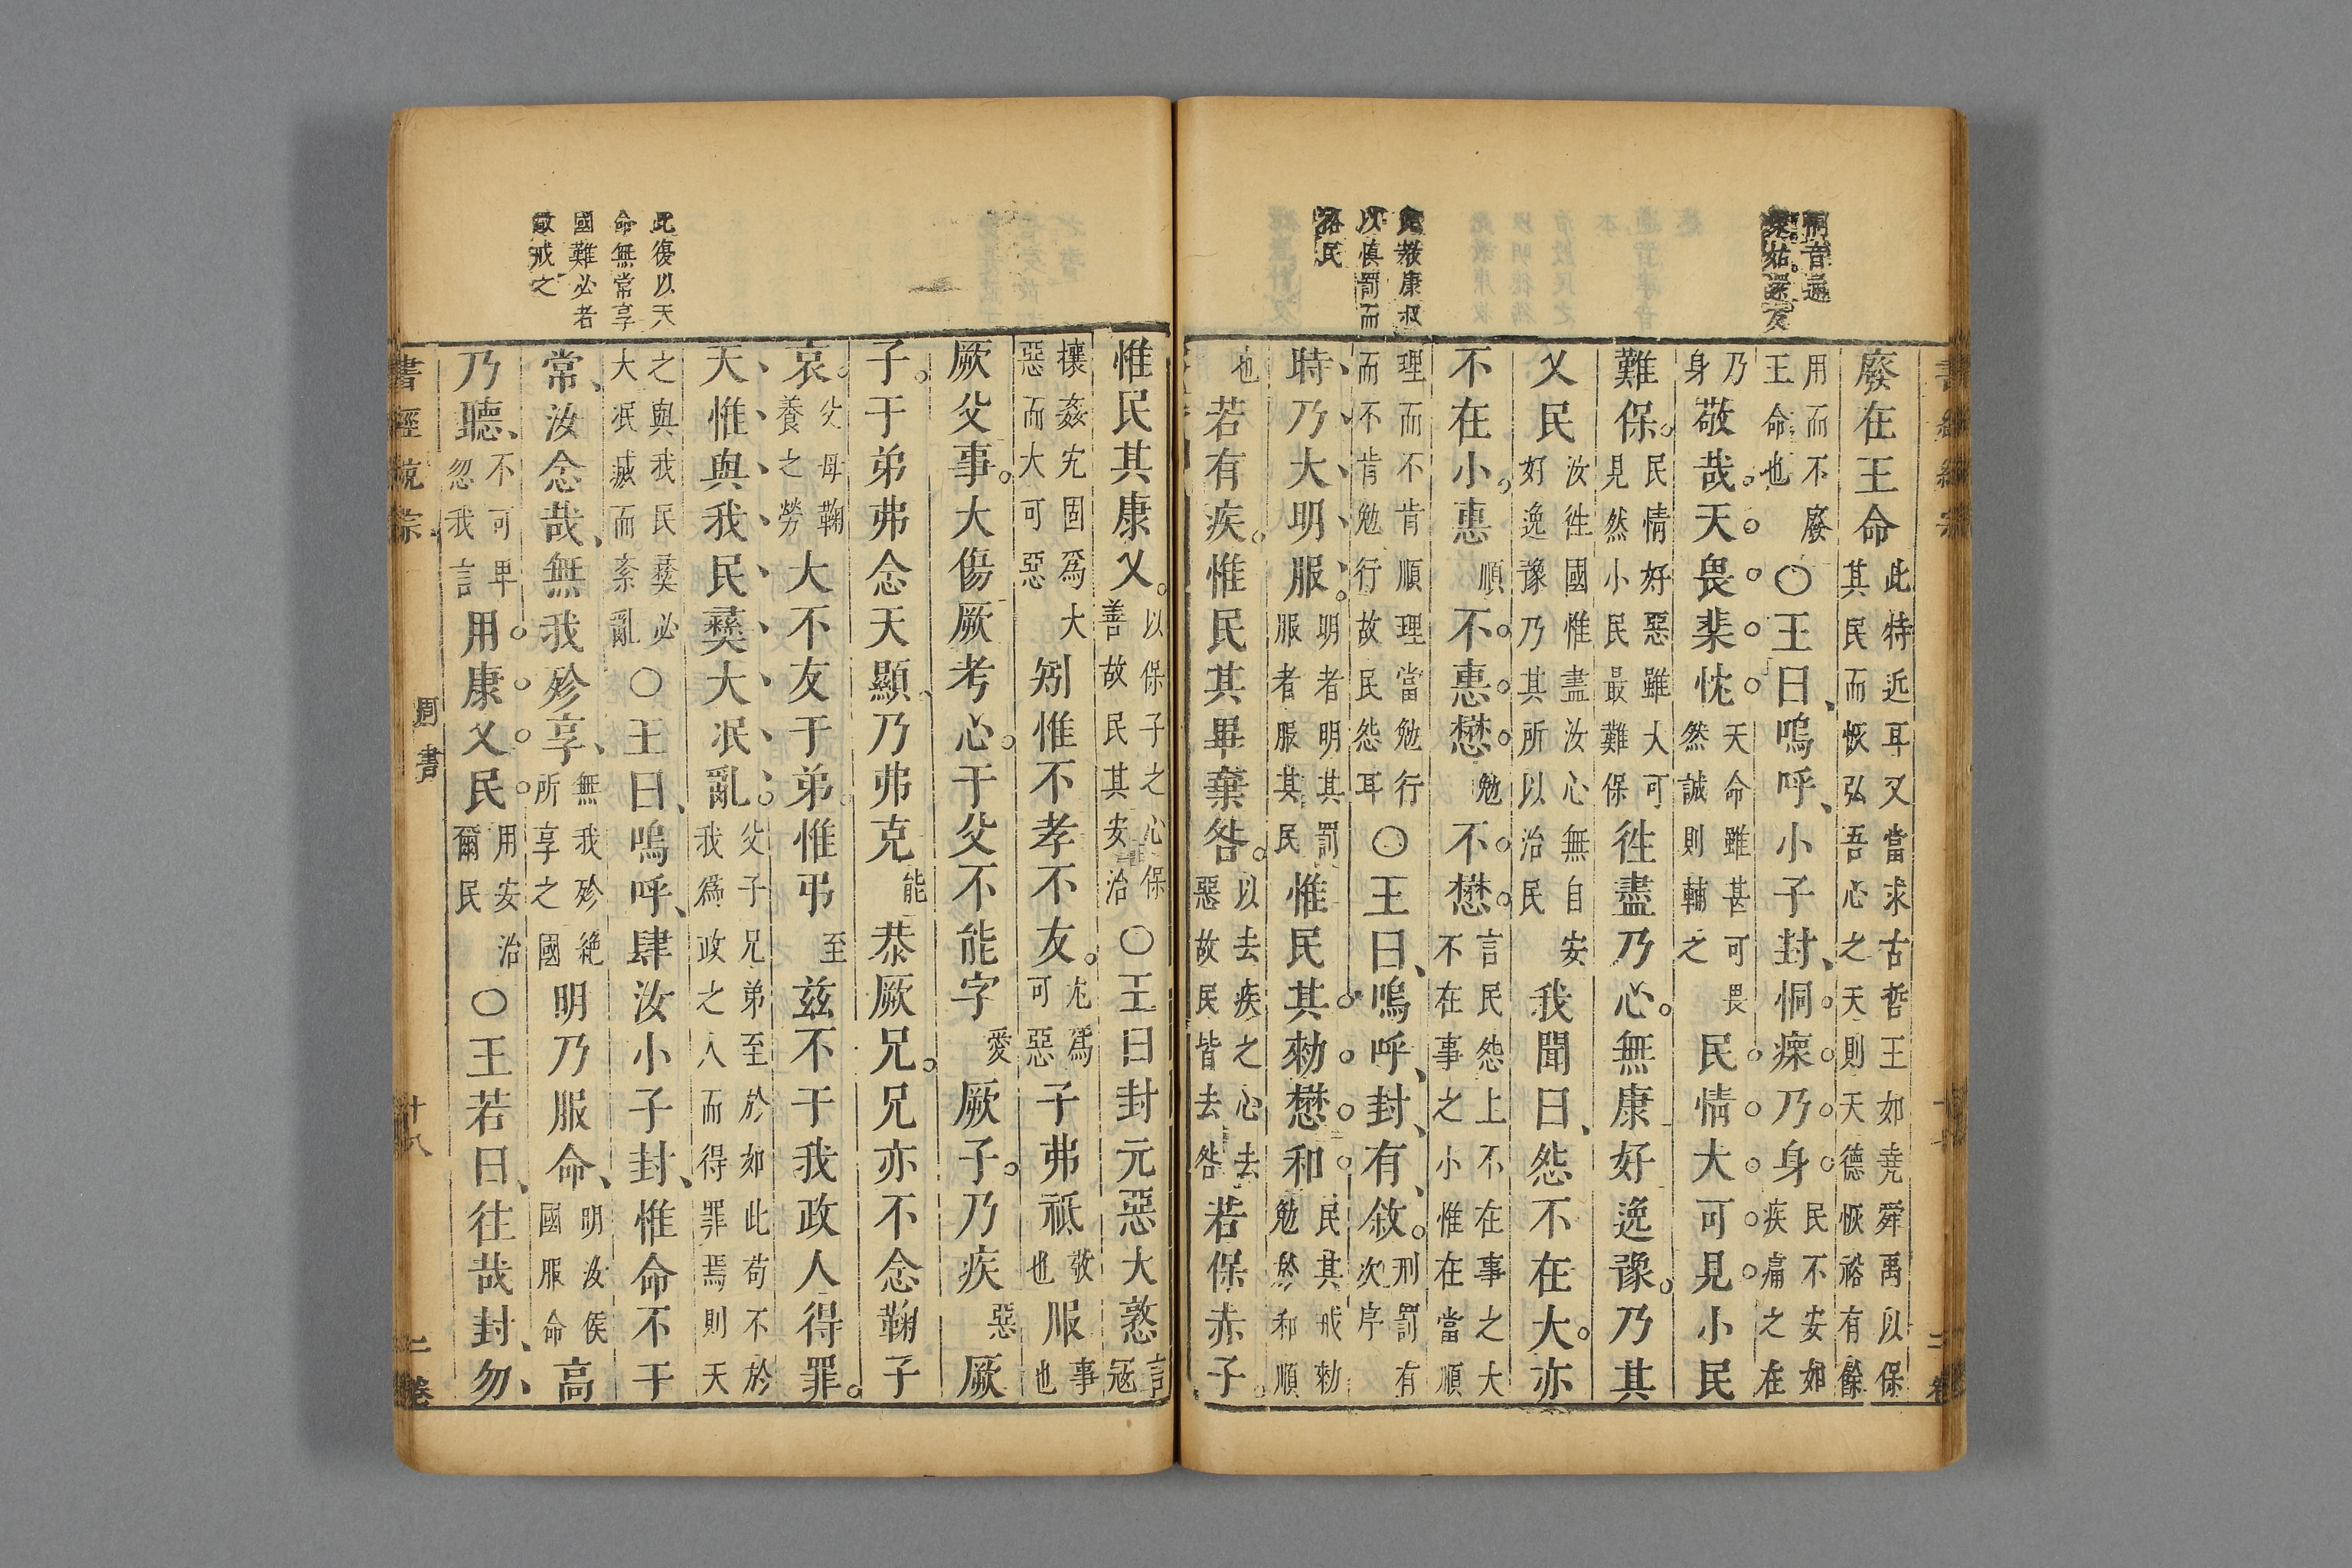 恫音通
瘝姑還反
此教康叔
以慎罰而
裕民
廢在王命此特近耳又當求古哲王如堯舜禹以保其民而恢弘吾心之天則天德恢裕有餘
用而不廢王命也○王曰、嗚呼、小子封、恫瘝乃身。民不安如疾痛之在
乃身敬哉。天畏棐忱天命雖甚可畏然誠則輔之民情大可見小民
難保。民情好惡雖大可見然小民最難保徃盡乃心。無康好逸豫。乃其
乂民汝徃國惟盡汝心無自安好逸豫乃其所以治民我聞曰、怨不在大。亦
不在小。惠順不惠懋勉不懋言民怨上不在事之大不在事之小惟在當順
理而不肯順理當勉行而不肯勉行故民怨耳○王曰、嗚呼、封、有敘。刑罰有次序
時乃大明服。明者明其罰服者服其民惟民其勑懋和民其戒勑勉於和順
也若有疾。惟民其畢棄咎。以去疾之心去惡故民皆去咎若保赤子。
惟民其康乂。以保子之心保善故民其安治○王曰封元惡大憝言寇
攘姦宄固爲大惡而大可惡矧惟不孝不友。尤爲可惡子弗祗敬也服事也
厥父事。大傷厥考心。于父不能字愛厥子。乃疾惡厥
子。于弟弗念天顯、乃弗克能恭厥兄。兄亦不念鞠子
哀。父母鞠養之勞大不友于弟。惟弔至茲不于我政人得罪。
天惟與我民彝大泯亂。父子兄弟至於如此苟不於我爲政之人而得罪焉則天
之與我民彝必大泯滅而紊亂○王曰、嗚呼、肆汝小子封、惟命不于
常、汝念哉、無我殄享、無我殄絶所享之國明乃服命、明汝侯國服命高
乃聽、不可卑忽我言用康乂民。用安治爾民○王若曰、往哉封、勿、
此復以天
命無常享
國難必者
敬戒之
書經統宗
周書
十八
二卷